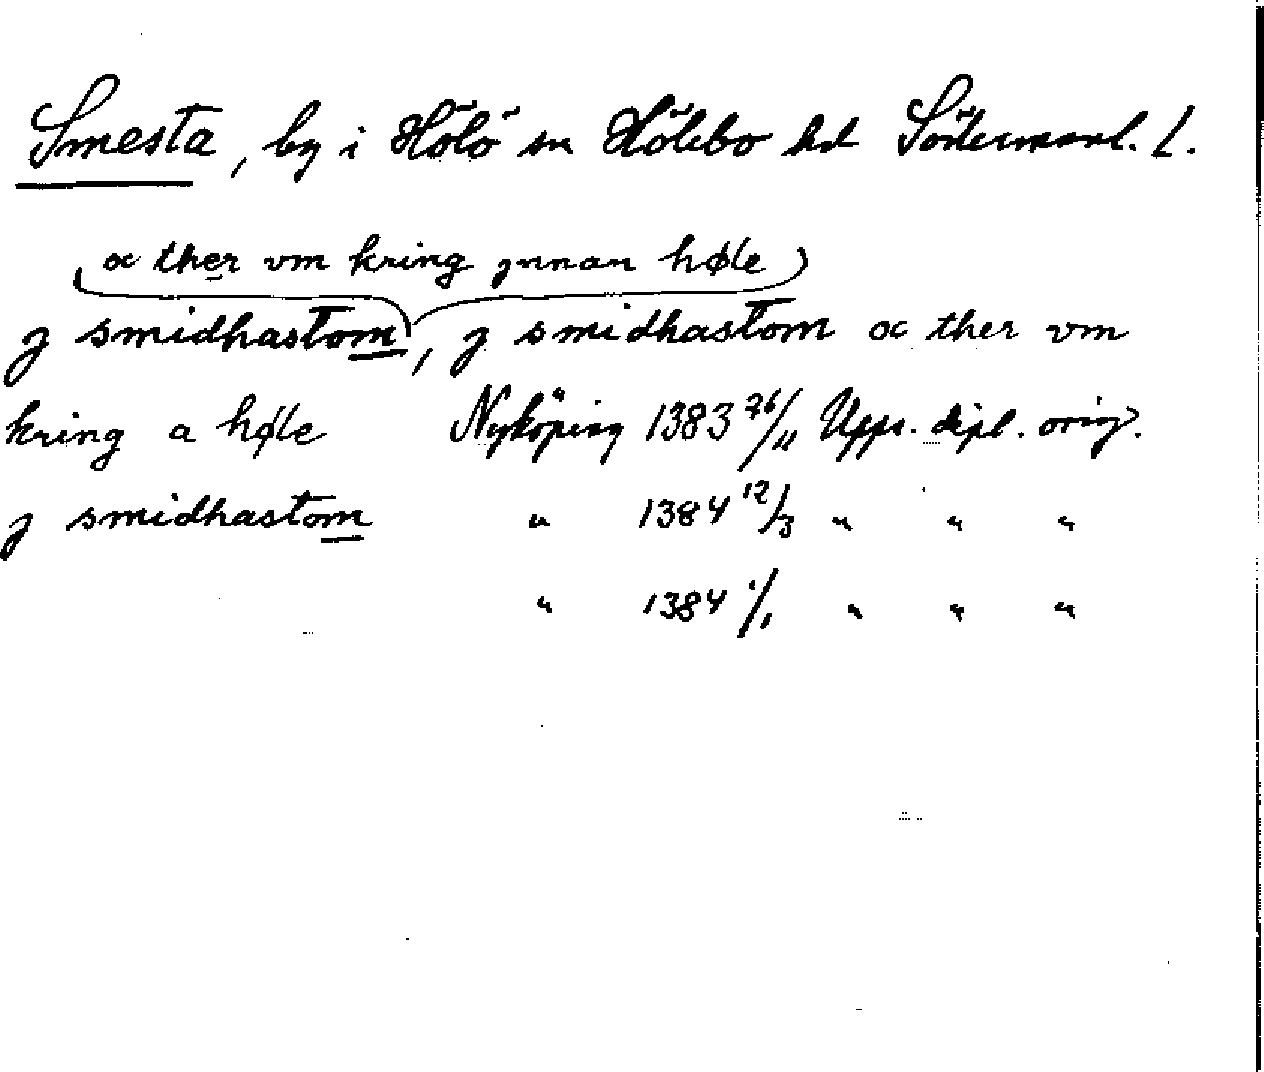 Smesta, by i Hölö sn Hölebo hd Södermanl. L.
(oc ther vm kring jnnan høle)
j smidhastom, j smidhastom oc ther vm
kring a høle Nyköping 1383 26/11 Upps. dipl. orig.
j smidhastom " 1384 12/3 " " "
" 1384 1/1 " " "